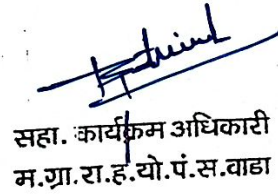 सहा. कार्यक्रम अधिकारी
म.ग्रा.रा.ह.यो.पं.स.वाडा